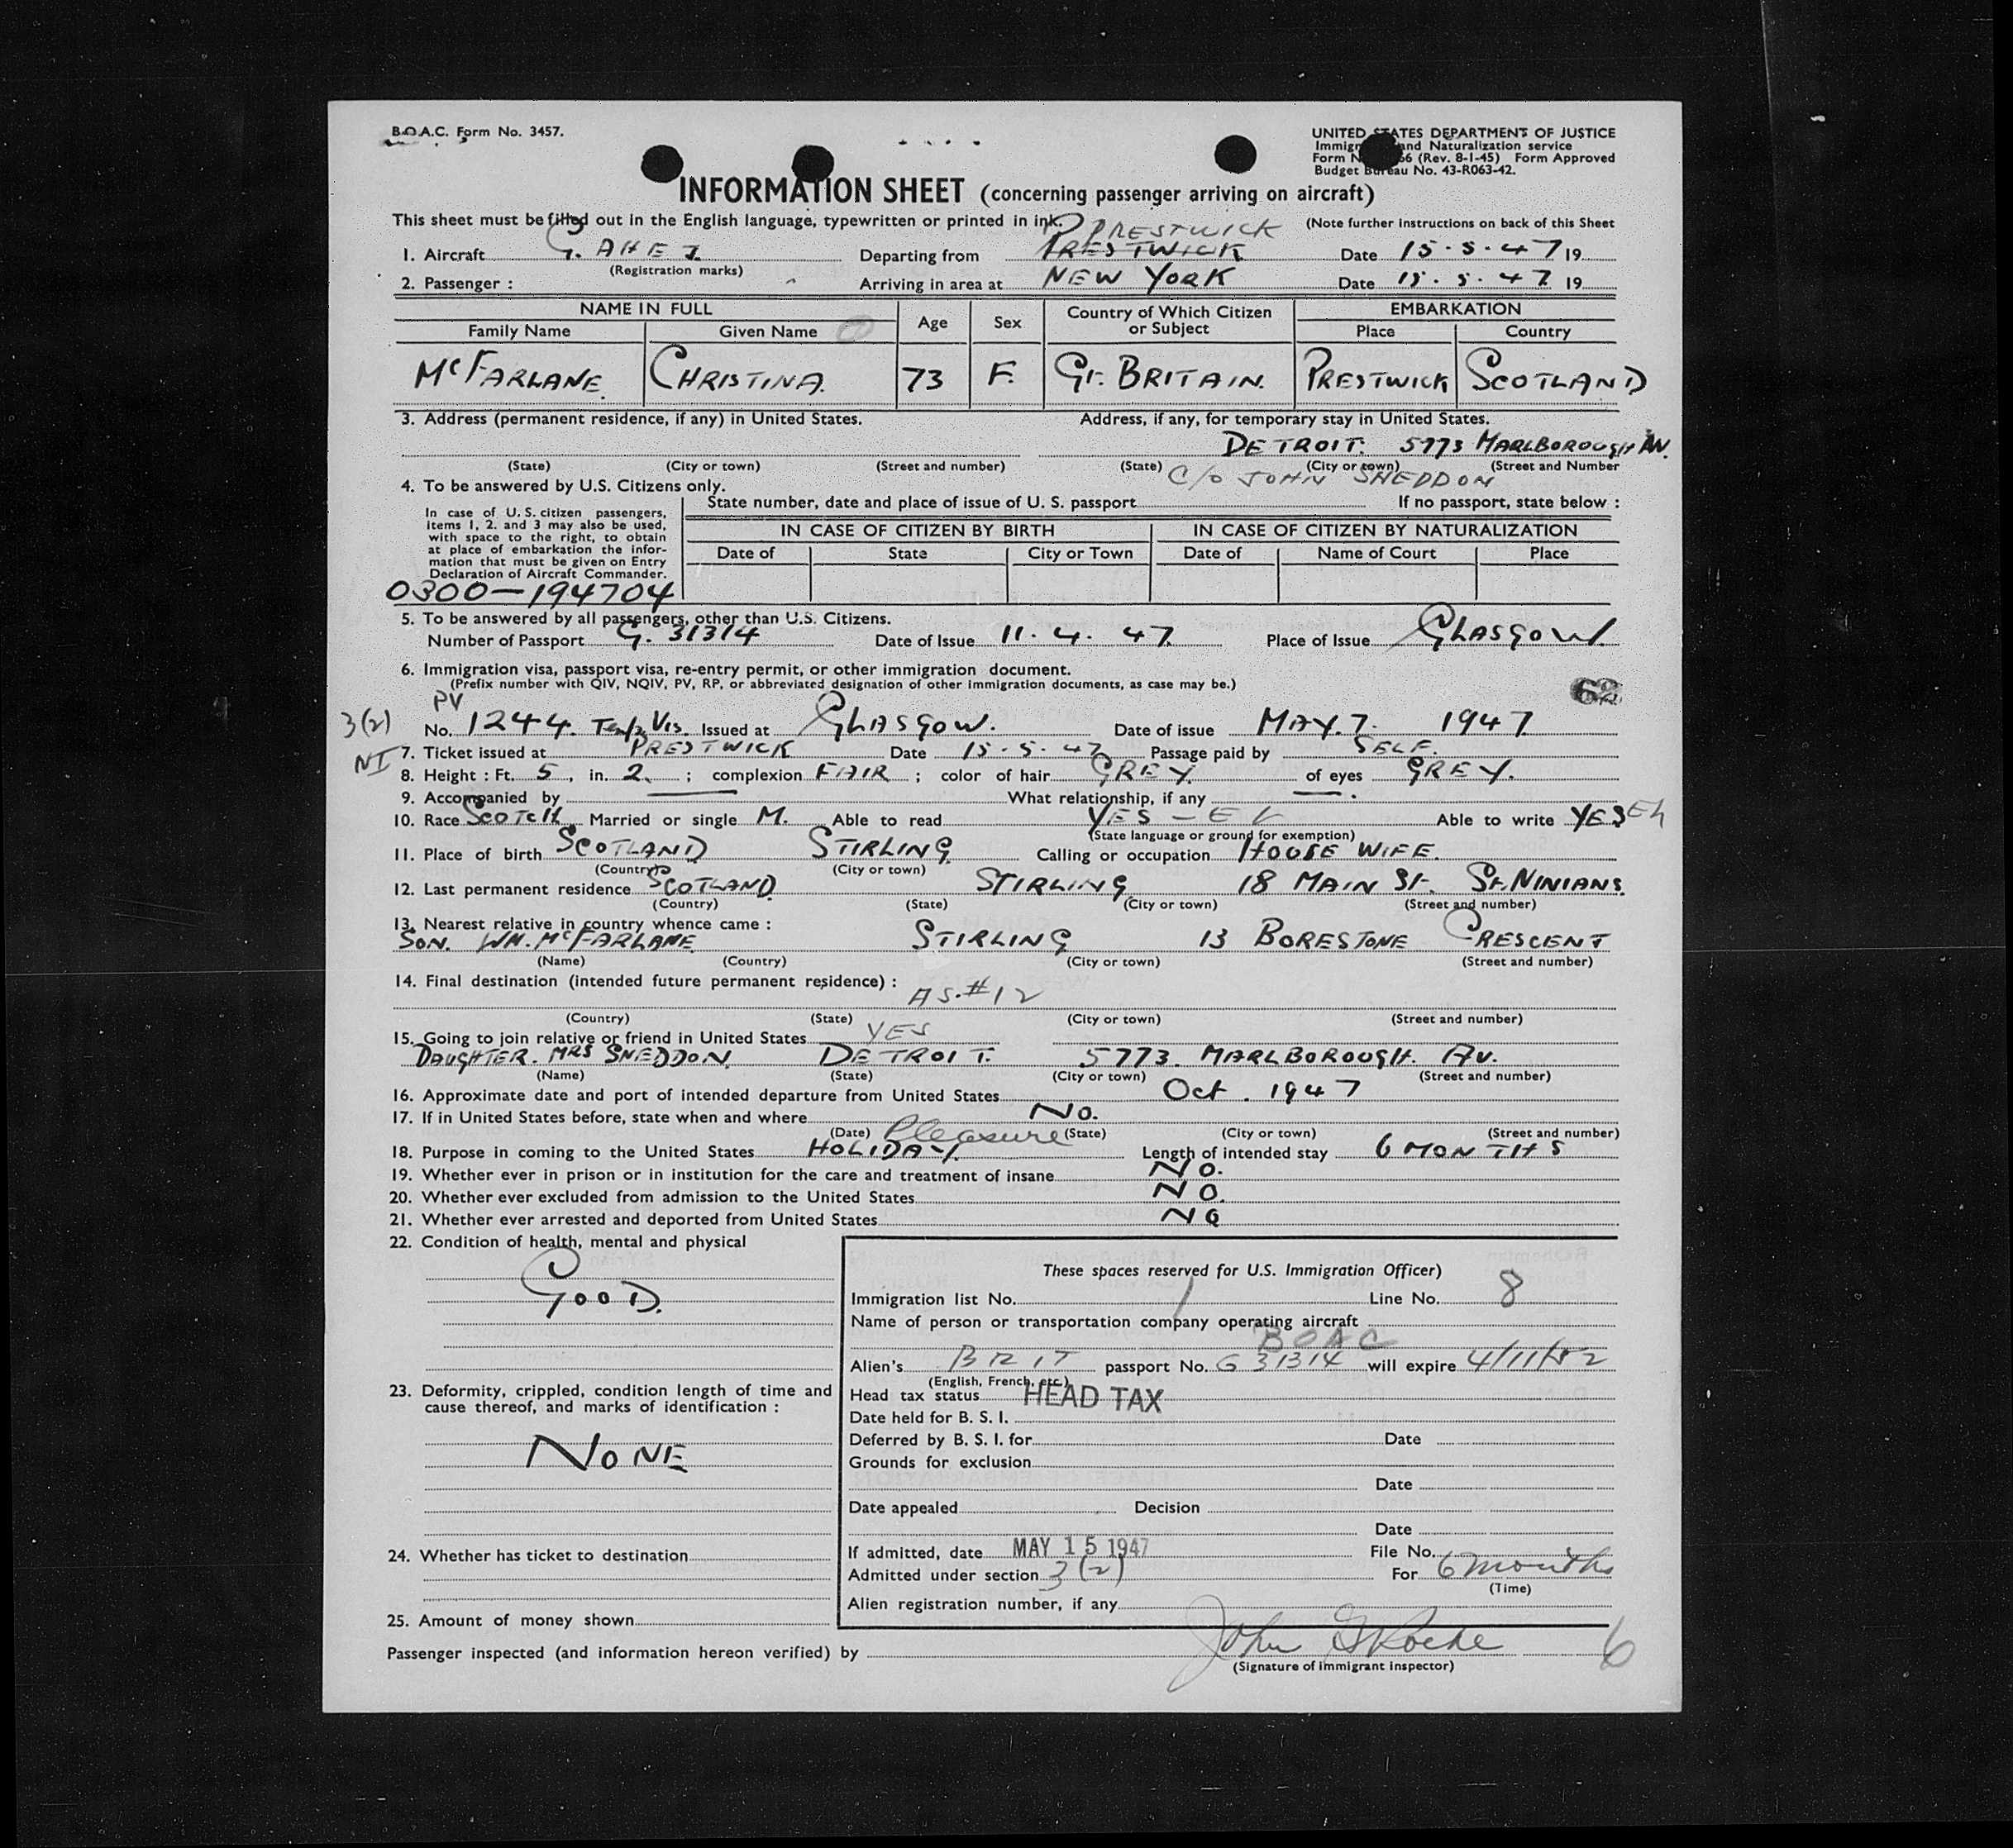 B.O.A.C. Form No. 3457.
UNITED STATES DEPARTMENT OF JUSTICE
and Naturalization service
66 (Rev. 8-1-45) Form Approved
Budget Bureau No. 43-R063-42.
INFORMATION SHEET (concerning passenger arriving on aircraft)
This sheet must be filled out in the English language, typewritten or printed in ink. (Note further instructions on back of this Sheet
PRESTWICK
1. Aircraft Departing from PRESTWICK Date 15.5.47 19
(Registration marks)
2. Passenger : Arriving in area at NEW YORK Date 15.5.47 19
NAME IN FULL Age Sex Country of Which Citizen or Subject EMBARKATION
Family Name Given Name Place Country
McFARLANE. CHRISTINA. 73 F. GT. BRITAIN. PRESTWICK SCOTLAND
3. Address (permanent residence, if any) in United States. Address, if any, for temporary stay in United States.
DETROIT. 5773 MARLBOROUGH AV.
(State) (City or town) (Street and number) (State) (City or town) (Street and Number
C/O JOHN SNEDDON
4. To be answered by U.S. Citizens only.
State number, date and place of issue of U. S. passport If no passport, state below :
In case of U. S. citizen passengers,
items 1, 2. and 3 may also be used,
with space to the right, to obtain
at place of embarkation the infor-
mation that must be given on Entry
Declaration of Aircraft Commander.
IN CASE OF CITIZEN BY BIRTH IN CASE OF CITIZEN BY NATURALIZATION
Date of State City or Town Date of Name of Court Place
0300-194704
5. To be answered by all passengers, other than U.S. Citizens.
Number of Passport G. 31314 Date of Issue 11.4.47. Place of Issue GLASGOW.
6. Immigration visa, passport visa, re-entry permit, or other immigration document.
(Prefix number with QIV, NQIV, PV, RP, or abbreviated designation of other immigration documents, as case may be.)
62
PV
3(2) No. 1244. Temp. Vis. Issued at GLASGOW. Date of issue MAY. 7. 1947.
NI 7. Ticket issued at PRESTWICK Date 15.5.47 Passage paid by SELF.
8. Height : Ft. 5, in. 2 ; complexion FAIR ; color of hair GREY. of eyes GREY.
9. Accompanied by What relationship, if any
10. Race SCOTCH Married or single M. Able to read YES - Able to write YES
(State language or ground for exemption)
11. Place of birth SCOTLAND STIRLING. Calling or occupation HOUSE WIFE.
(Country) (City or town)
12. Last permanent residence SCOTLAND. STIRLING. 18 MAIN ST. ST. NINIANS.
(Country) (State) (City or town) (Street and number)
13. Nearest relative in country whence came :
SON. WM. McFARLANE STIRLING 13 BORESTONE CRESCENT
(Name) (Country) (City or town) (Street and number)
14. Final destination (intended future permanent residence) :
AS. #12
(Country) (State) (City or town) (Street and number)
15. Going to join relative or friend in United States YES
DAUGHTER. MRS SNEDDON. DETROIT. 5773. MARLBOROUGH. AV.
(Name) (State) (City or town) (Street and number)
16. Approximate date and port of intended departure from United States Oct. 1947
17. If in United States before, state when and where NO.
(Date) (State) (City or town) (Street and number)
Pleasure
18. Purpose in coming to the United States HOLIDAY. Length of intended stay 6 MONTHS
19. Whether ever in prison or in institution for the care and treatment of insane NO.
20. Whether ever excluded from admission to the United States NO.
21. Whether ever arrested and deported from United States NO
22. Condition of health, mental and physical
GOOD.
23. Deformity, crippled, condition length of time and
cause thereof, and marks of identification :
NONE
24. Whether has ticket to destination
25. Amount of money shown
These spaces reserved for U.S. Immigration Officer)
Immigration list No. 1 Line No. 8
Name of person or transportation company operating aircraft
BOAC
Alien's BRIT passport No. G 31314 will expire 4/11/52
(English, French, etc.)
Head tax status HEAD TAX
Date held for B. S. I.
Deferred by B. S. I. for Date
Grounds for exclusion
Date
Date appealed Decision
Date
If admitted, date MAY 15 1947 File No.
Admitted under section 3(2) For 6 months
(Time)
Alien registration number, if any
Passenger inspected (and information hereon verified) by John 6
(Signature of Immigrant Inspector)